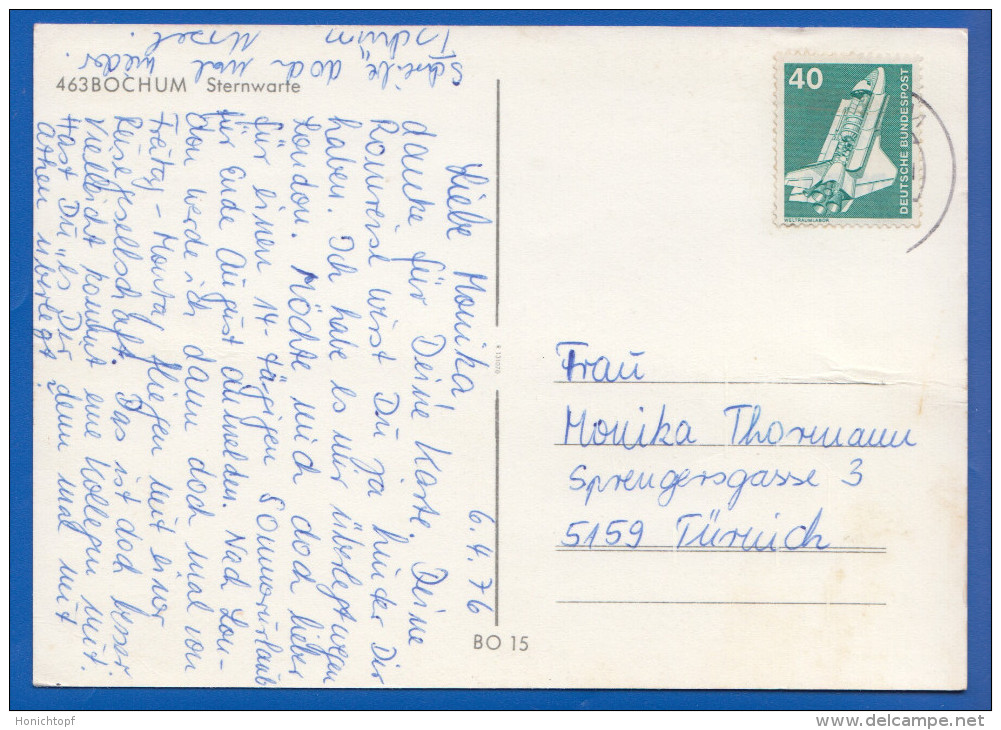 463BOCHUM Sternwarte
6.4.76
Liebe Monika!
danke für Deine Karte. Deine
Romreise wirst Du ja hinter Dir
haben. Ich habe es mir überlegt wegen
London. Möchte mich doch lieber
für einen 14-tägigen Sommerurlaub
für Ende August anmelden. Nach Lon-
don werde ich dann doch mal von
Freitag - Montag fliegen mit einer
Reisegesellschaft. Das ist doch besser.
Vielleicht kommt eine Kollegin mit.
Hast Du es Dir denn mal mit
Athen überlegt?
Schreibe doch mal wieder.
Tschüß
Ursel.
BO 15
40
DEUTSCHE BUNDESPOST
WELTRAUMLABOR
Frau
Monika Thormann
Sprengersgasse 3
5159 Türnich
Honichtopf
delcampe.net